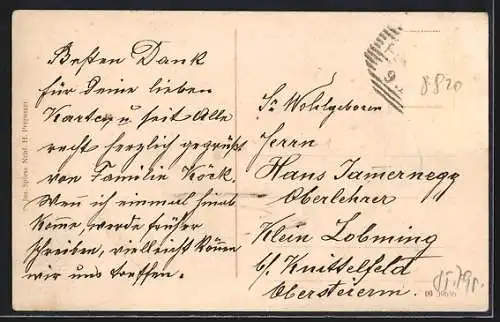 Besten Dank
für deine lieben
Karte, u. seit Alle
recht herzlich gegrüßt
von Familie Köck.
Wen ich einmal hinab
komme, werde früher
schreiben, vielleicht können
wir uns treffen.
Sr. Wohlgeboren
Herrn
Hans Jamernegg
Oberlehrer
Klein Lobming
b/ Knittelfeld
Obersteierm.
8820